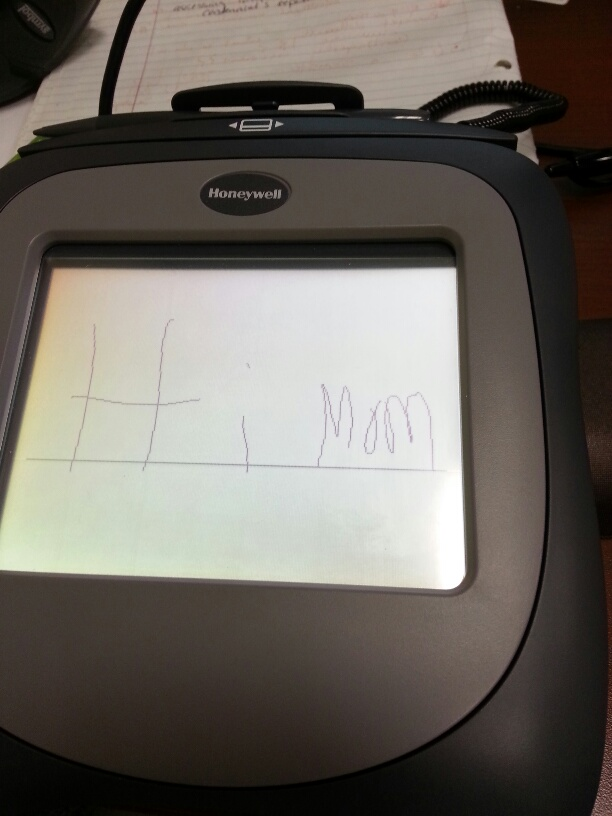 Honeywell
Hi Mom